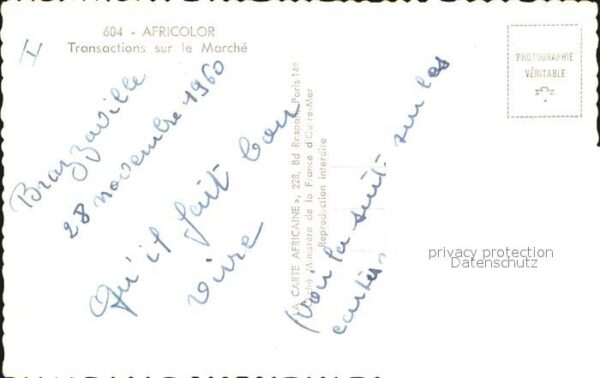 604 - AFRICOLOR
Transactions sur le Marché
I
PHOTOGRAPHIE
VÉRITABLE
Brazzaville
28 novembre 1960
Qu'il fait bon
vivre
(Voir la suite sur les
cartes.
LA CARTE AFRICAINE », 228, Bd Raspail Paris 14e
Ministère de la France d'Outre-Mer
Reproduction interdite
privacy protection
Datenschutz